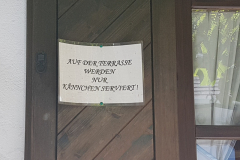 AUF DER TERRASSE
WERDEN
NUR
KÄNNCHEN SERVIERT!